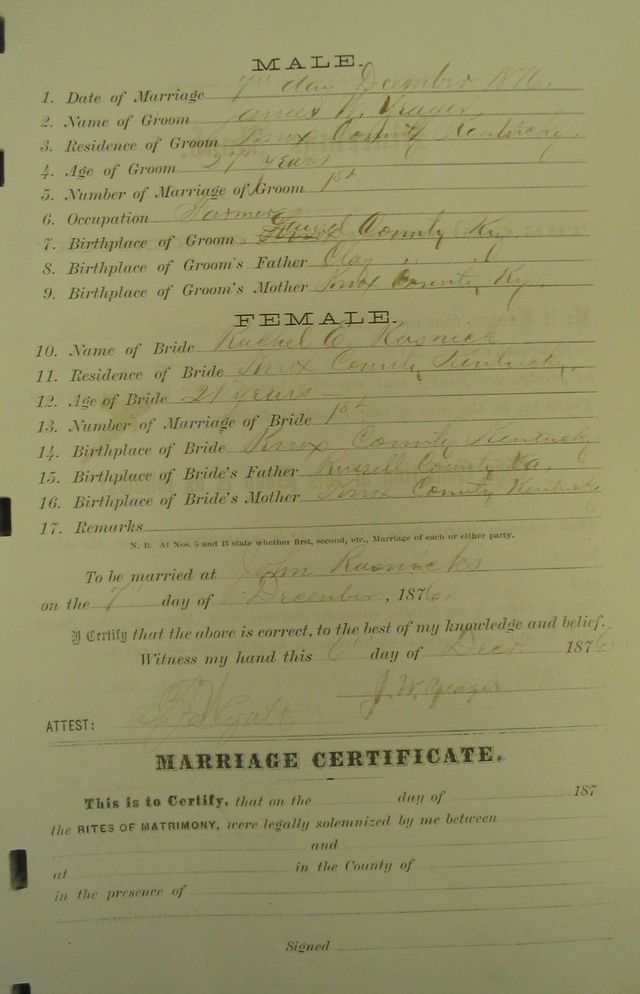 MALE.
1. Date of Marriage 7th day December 1876.
2. Name of Groom James W. Yeager
3. Residence of Groom Knox County Kentucky.
4. Age of Groom 27 years
5. Number of Marriage of Groom 1st
6. Occupation Farmer
7. Birthplace of Groom County Ky
8. Birthplace of Groom's Father Clay " "
9. Birthplace of Groom's Mother Knox County Ky.
FEMALE.
10. Name of Bride Rachel E. Rusnick
11. Residence of Bride Knox County Kentucky.
12. Age of Bride 21 years
13. Number of Marriage of Bride 1st
14. Birthplace of Bride Knox County Kentucky
15. Birthplace of Bride's Father Russell County Va.
16. Birthplace of Bride's Mother Knox County Kentucky
17. Remarks
N. B. At Nos. 5 and 13 state whether first, second, etc., Marriage of each or either party.
To be married at
on the 7th day of December, 1876.
I Certify that the above is correct, to the best of my knowledge and belief.
Witness my hand this 6th day of Decr 1876
J. W. Yeager
ATTEST:
MARRIAGE CERTIFICATE.
This is to Certify, that on the day of 187
the RITES OF MATRIMONY, were legally solemnized by me between
and
at in the County of
in the presence of
Signed